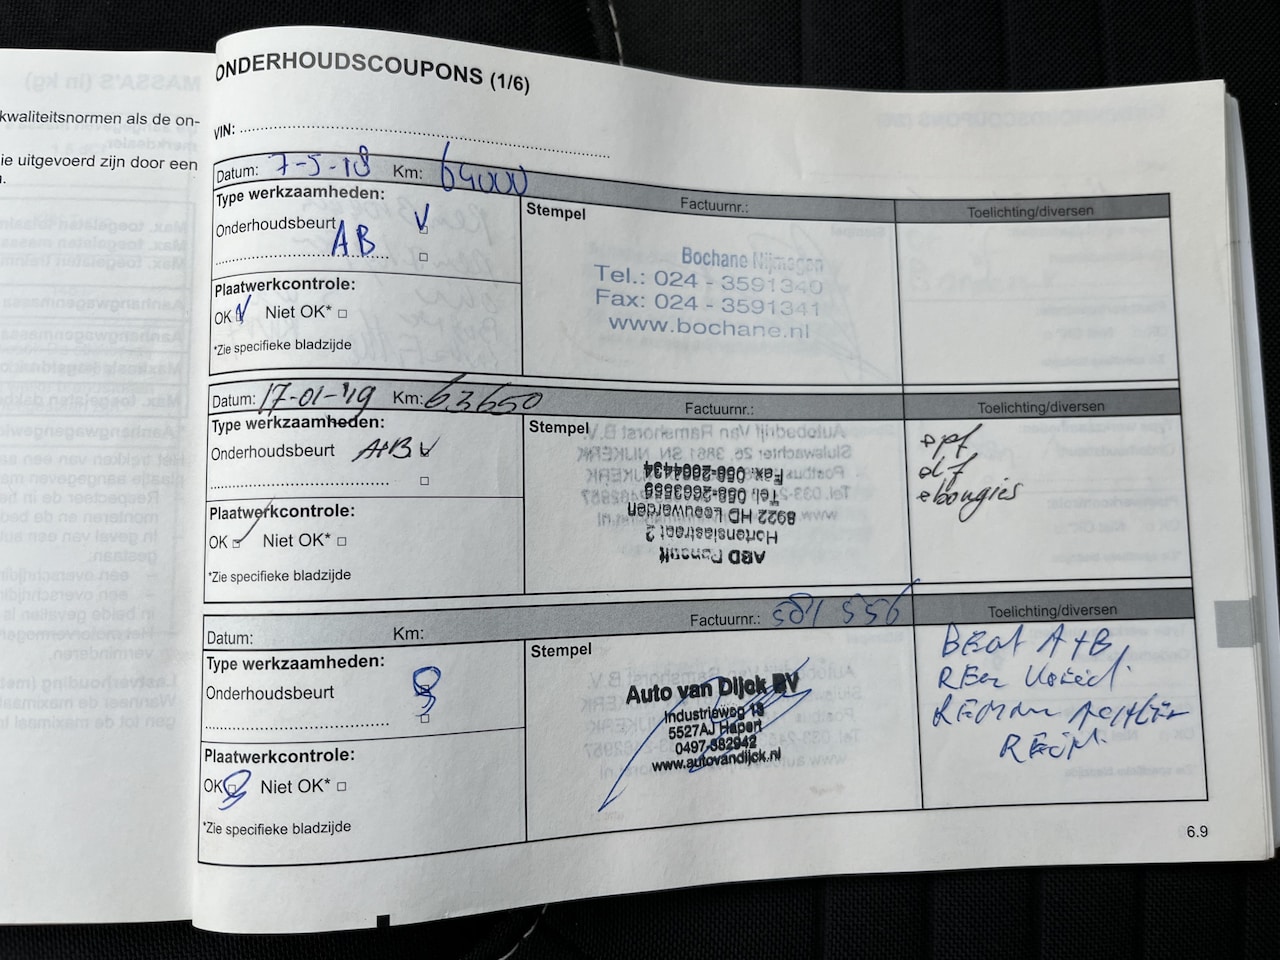 kwaliteitsnormen als de on-
ie uitgevoerd zijn door een
ONDERHOUDSCOUPONS (1/6)
VIN:
Datum: 7-5-18 Km: 64000
Factuurnr.:
Toelichting/diversen
Type werkzaamheden:
Stempel
Onderhoudsbeurt AB
Bochane Nijmegen
Tel.: 024 - 3591340
Fax: 024 - 3591341
www.bochane.nl
Plaatwerkcontrole:
OK Niet OK*
*Zie specifieke bladzijde
Datum: 17-01-'19 Km: 63650
Factuurnr.:
Toelichting/diversen
Type werkzaamheden:
Stempel
Onderhoudsbeurt A+B
ppf
olf
bougies
ABD
Hortensiastraat 2
8922 HD Leeuwarden
Tel: 058-2663555
Fax: 058-2664434
Plaatwerkcontrole:
OK Niet OK*
*Zie specifieke bladzijde
Datum: Km:
Factuurnr.: 581556
Toelichting/diversen
Type werkzaamheden:
Stempel
Onderhoudsbeurt
Auto van Dijck BV
Industrieweg 13
5527AJ Hapert
0497-382942
www.autovandijck.nl
Beurt A+B
Rem vloeist.
Remmen achter
Rein.
Plaatwerkcontrole:
OK Niet OK*
*Zie specifieke bladzijde
6.9